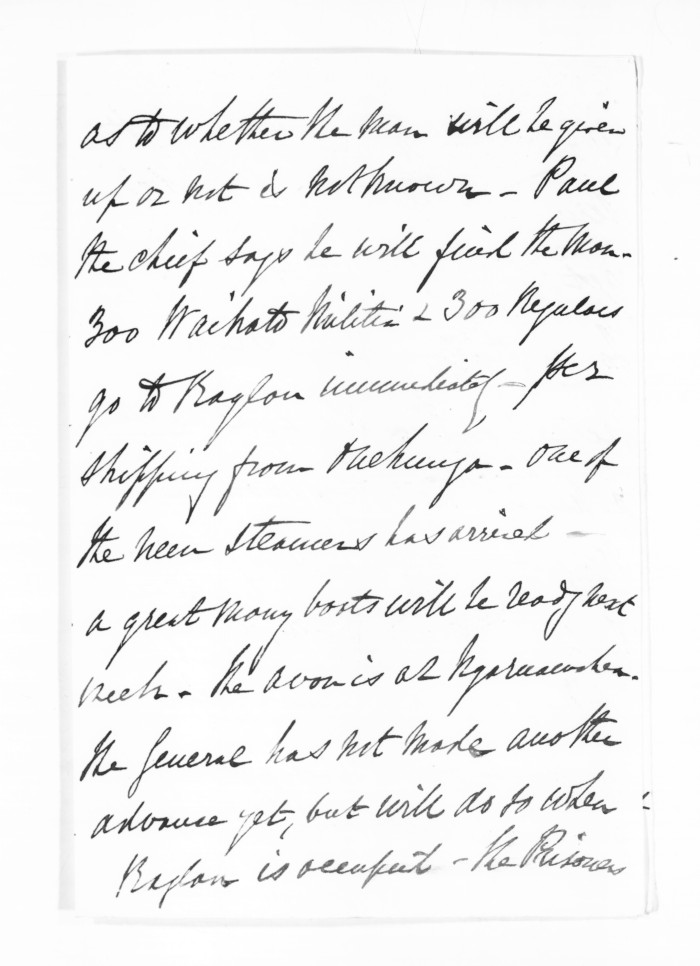 as to whether the man will be given
up or not is not known - Paul
the chief says he will find the man -
300 Waikato Militia & 300 Regulars
go to Raglan immediately - per
shipping from Onehunga - one of
the new steamers has arrived -
a great many boats will be ready next
week - the Avon is at Ngaruawahia -
the General has not made another
advance yet, but will do so when
Raglan is occupied - the Prisoners